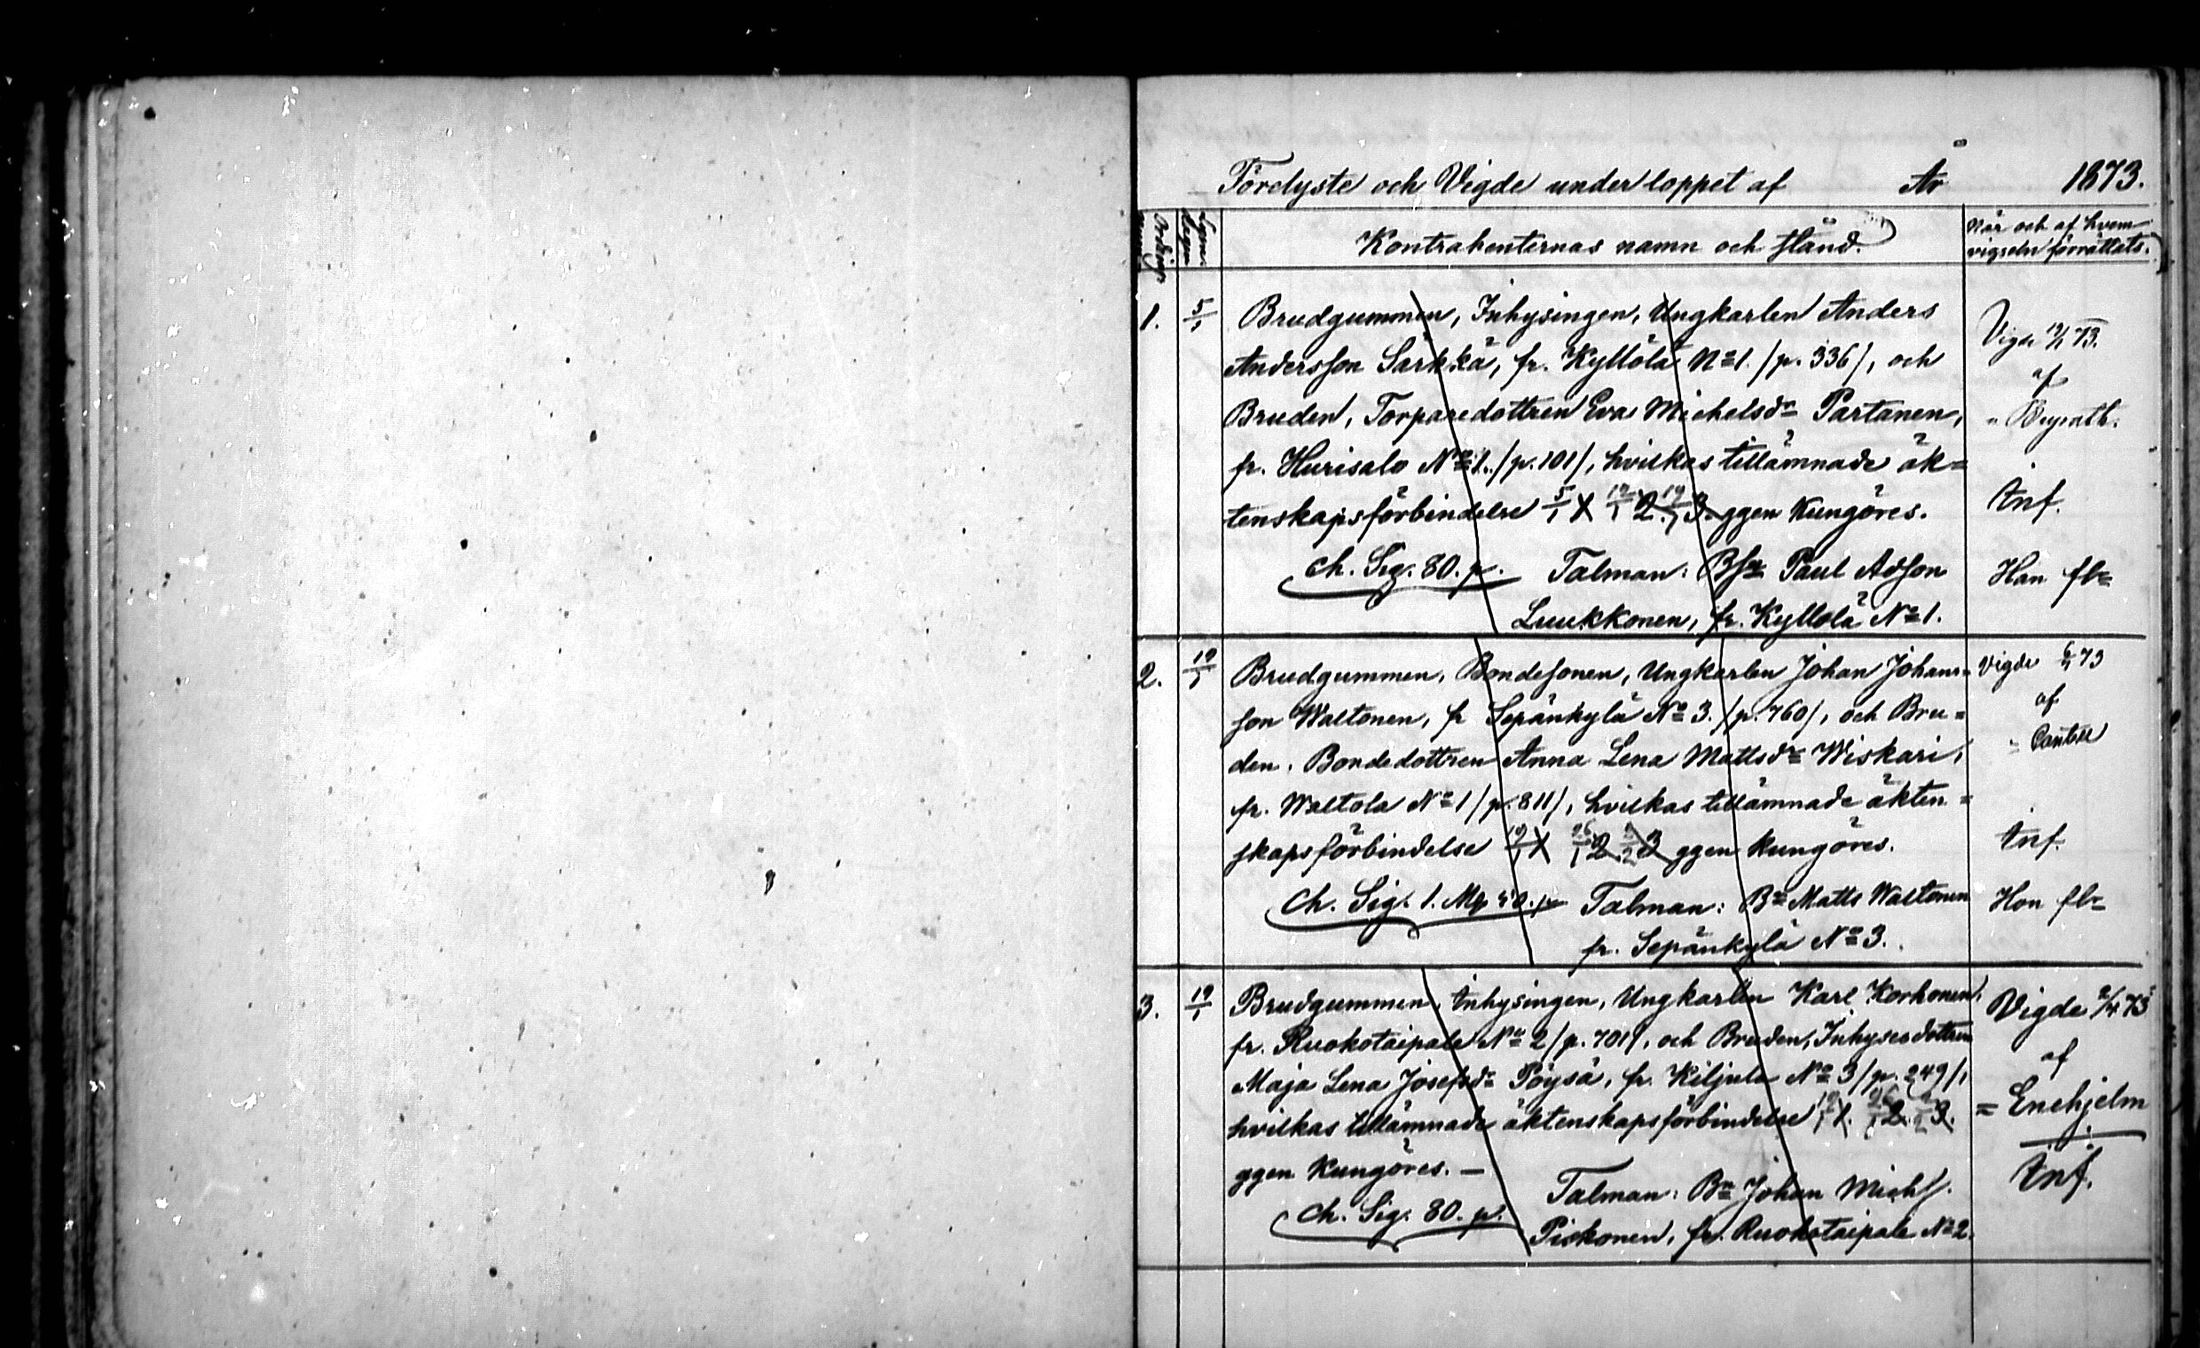 Förelyste och Vigde under loppet af År 1873.
Ordnings
Kontrahenternas namn och stånd.
När och af hvem
vigseln förrättats.
1. 5/1 Brudgummen, Inhysingen, Ungkarlen Anders
Andersson Särkkä, fr. Kyllölä No 1. /p. 336/, och
Bruden, Torparedottren Eva Michelsdr Partanen,
fr. Hurisalo No 1. /p. 101/, hvilkas tillämnade äk=
tenskapsförbindelse 5/1 1 12/1 2. 19/1 3. ggen Kungöres.
Ch. Sig. 80. p. Talman: Bsn Paul Adsson
Luukkonen, fr. Kyllölä No 1.
Vigde 73.
af
Inf.
Han fbr
2. 19/1 Brudgummen, Bondesonen, Ungkarlen Johan Johans=
son Waltonen, fr Sepänkylä No 3. /p. 760/, och Bru=
den, Bondedottren Anna Lena Mattsdr Wiskari,
fr. Waltola No 1 /p. 811/, hvilkas tillämnade äkten=
skapsförbindelse 19/1 1 26/1 2. 2/2 3 ggen kungöres.
Ch. Sig. 1. Mk 40. p Talman: Bn Matts Waltonen
fr. Sepänkylä No 3.
Vigde 73
af
Inf.
Hon fbr
3. 19/1 Brudgummen, Inhysingen, Ungkarlen Karl Korhonen,
fr. Ruokotaipale No 2 /p. 701/, och Bruden, Inhysesdottren
Maja Lena Josefsdr Pöysä, fr. Kiljula No 3 /p. 249/,
hvilkas tillämnade äktenskapsförbindelse 19/1 1. 26/1 2. 2/2 3.
ggen Kungöres. —
Ch. Sig. 80. p. Talman: Bn Johan Michs.
Piskonen, fr. Ruokotaipale No 2.
Vigde 2/4 73
af
= Enehjelm
Inf.